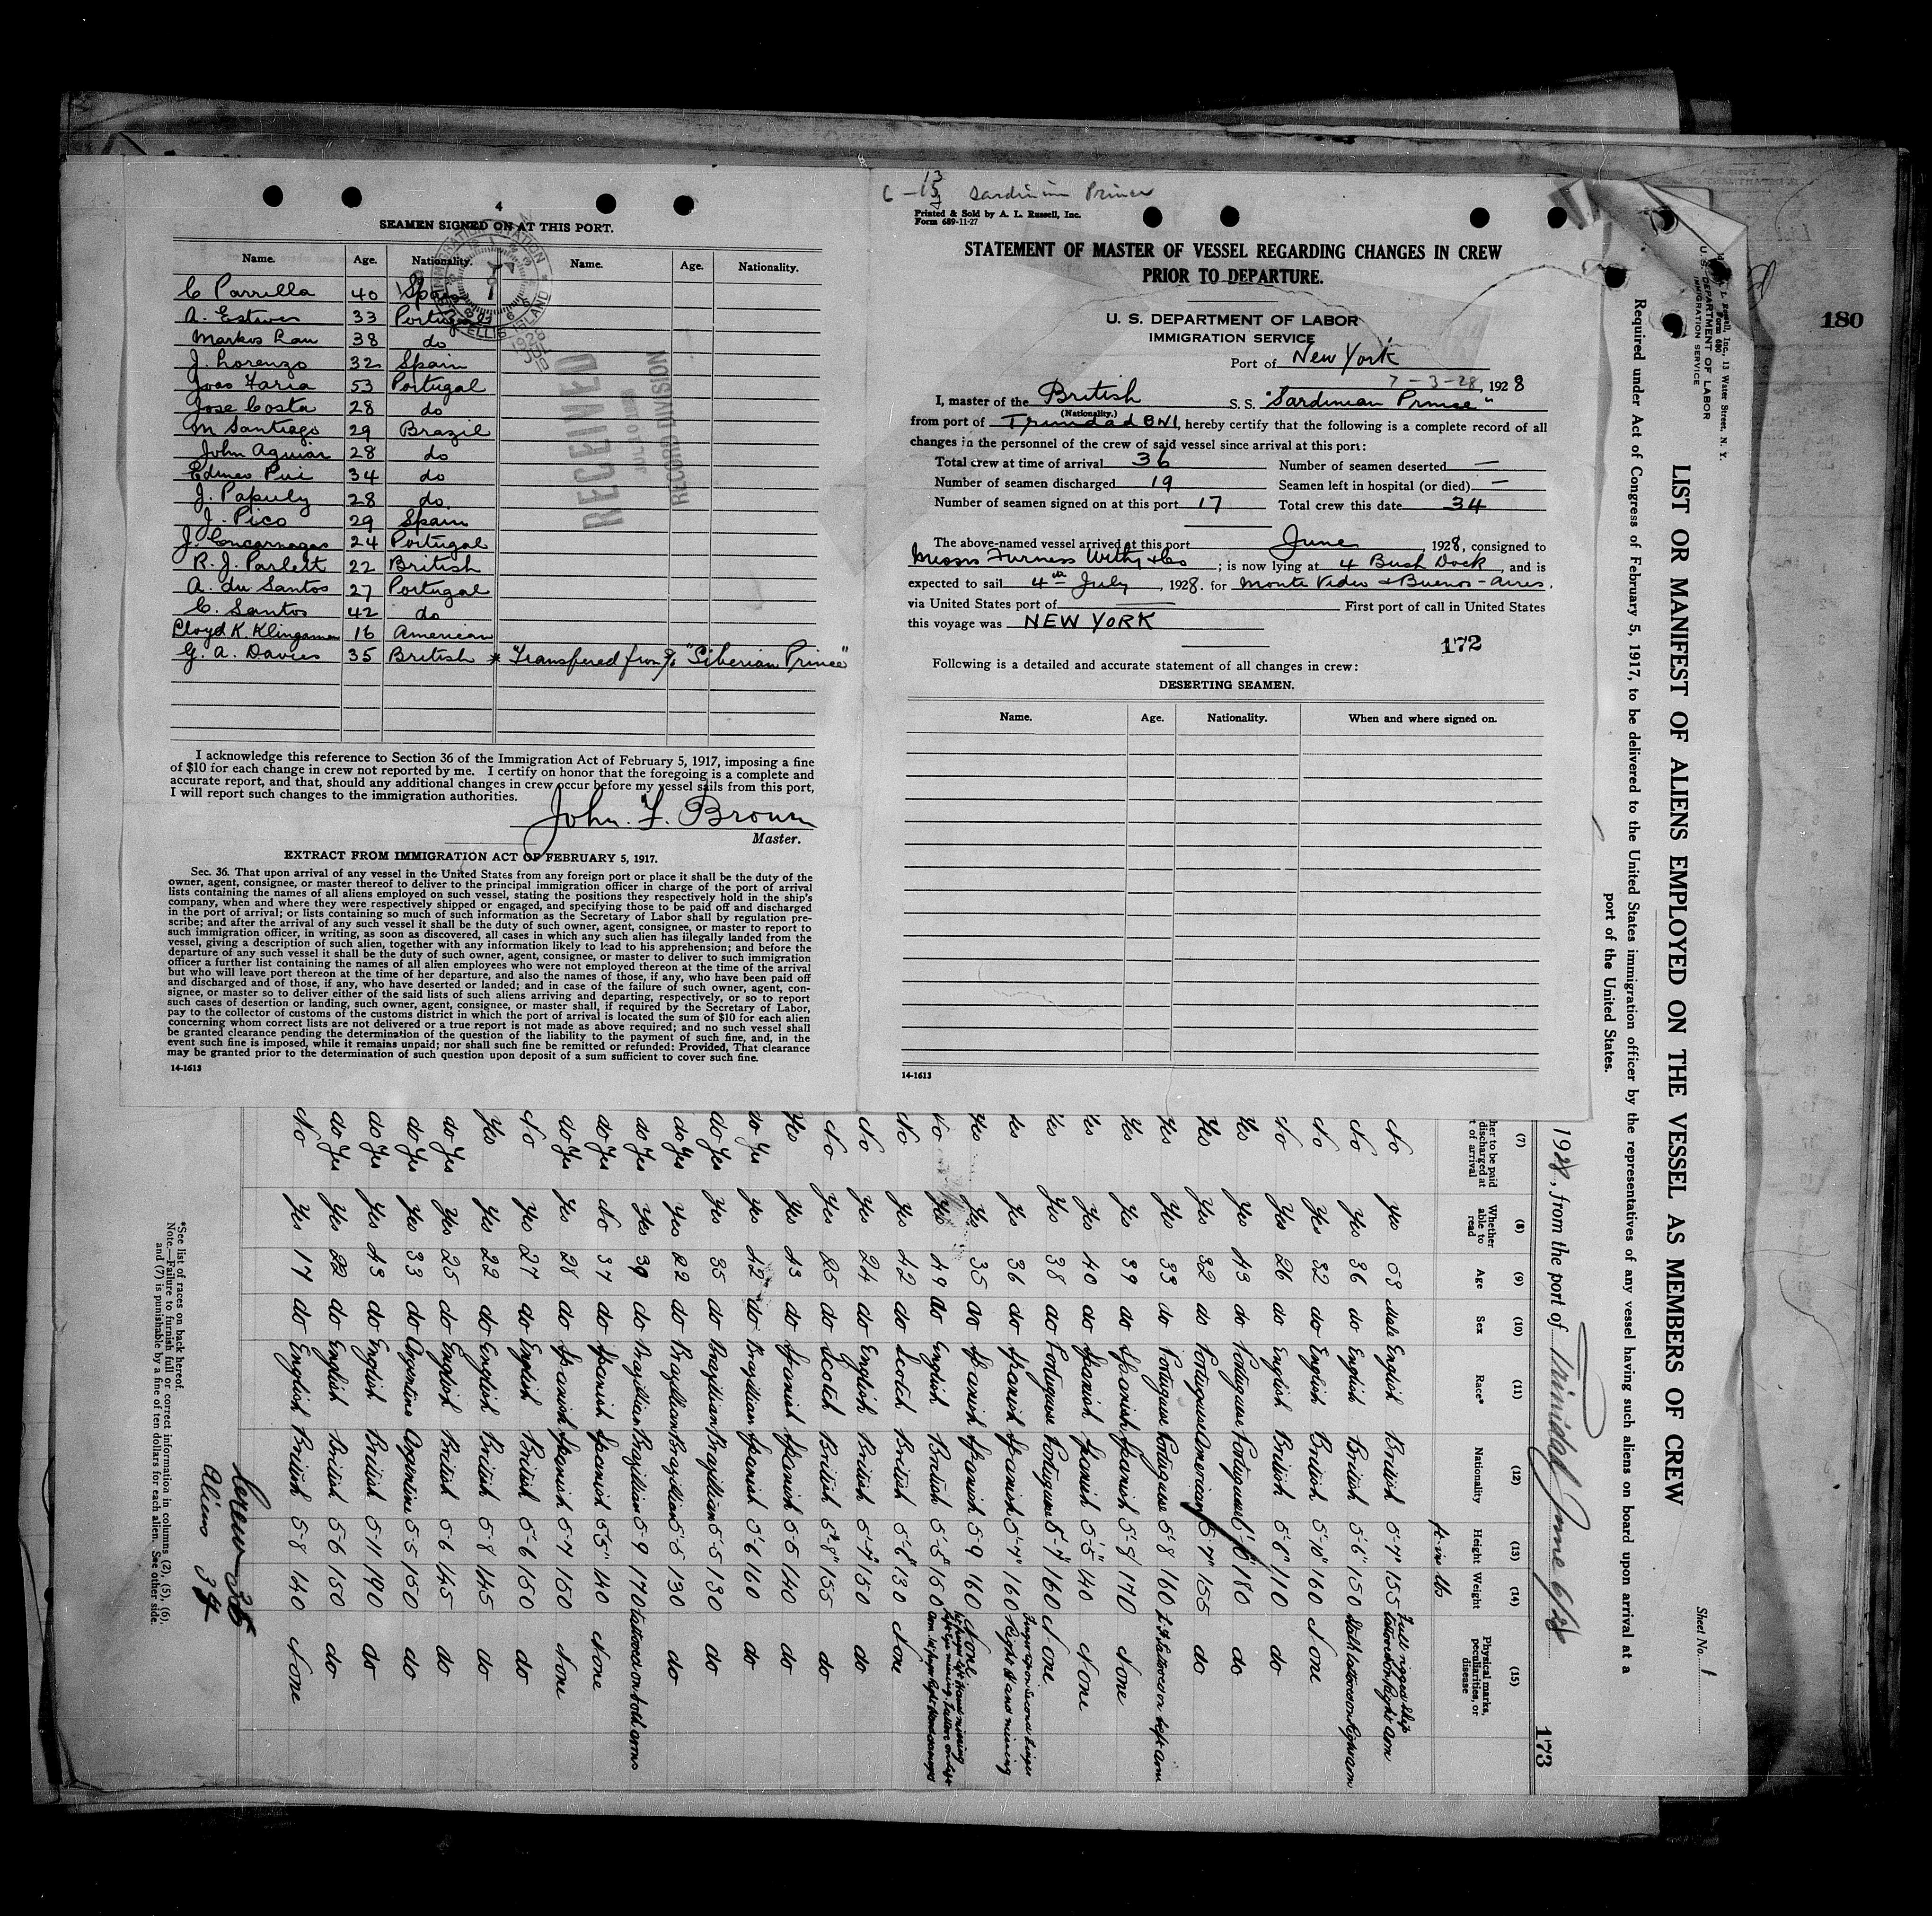 4
SEAMEN SIGNED ON AT THIS PORT.
Name. Age. Nationality. Name. Age. Nationality.
C Parrilla 40 Spain
A. Esteves 33 Portugal
Markus Rau 38 do
J. Lorenzo 32 Spain
Joao Faria 53 Portugal
Jose Costa 28 do
M Santiago 29 Brazil
John Aguiar 28 do
Edmeo Pui 34 do
J. Papuly 28 do
J. Pico 29 Spain
J. Encarnagas 24 Portugal
R. J. Parlett 22 British
A. du Santos 27 Portugal
C. Santos 42 do
Lloyd K. Klingaman 16 American
G. A. Davies 35 British * Transfered from S/S "Siberian Prince"
RECEIVED
JUL 10 1928
RECORD DIVISION
IMMIGRATION STATION
ELLIS ISLAND
I acknowledge this reference to Section 36 of the Immigration Act of February 5, 1917, imposing a fine
of $10 for each change in crew not reported by me. I certify on honor that the foregoing is a complete and
accurate report, and that, should any additional changes in crew occur before my vessel sails from this port,
I will report such changes to the immigration authorities.
John. F. Brown
Master.
EXTRACT FROM IMMIGRATION ACT OF FEBRUARY 5, 1917.
Sec. 36. That upon arrival of any vessel in the United States from any foreign port or place it shall be the duty of the
owner, agent, consignee, or master thereof to deliver to the principal immigration officer in charge of the port of arrival
lists containing the names of all aliens employed on such vessel, stating the positions they respectively hold in the ship's
company, when and where they were respectively shipped or engaged, and specifying those to be paid off and discharged
in the port of arrival; or lists containing so much of such information as the Secretary of Labor shall by regulation pre-
scribe; and after the arrival of any such vessel it shall be the duty of such owner, agent, consignee, or master to report to
such immigration officer, in writing, as soon as discovered, all cases in which any such alien has illegally landed from the
vessel, giving a description of such alien, together with any information likely to lead to his apprehension; and before the
departure of any such vessel it shall be the duty of such owner, agent, consignee, or master to deliver to such immigration
officer a further list containing the names of all alien employees who were not employed thereon at the time of the arrival
but who will leave port thereon at the time of her departure, and also the names of those, if any, who have been paid off
and discharged and of those, if any, who have deserted or landed; and in case of the failure of such owner, agent, con-
signee, or master so to deliver either of the said lists of such aliens arriving and departing, respectively, or so to report
such cases of desertion or landing, such owner, agent, consignee, or master shall, if required by the Secretary of Labor,
pay to the collector of customs of the customs district in which the port of arrival is located the sum of $10 for each alien
concerning whom correct lists are not delivered or a true report is not made as above required; and no such vessel shall
be granted clearance pending the determination of the question of the liability to the payment of such fine, and, in the
event such fine is imposed, while it remains unpaid; nor shall such fine be remitted or refunded: Provided, That clearance
may be granted prior to the determination of such question upon deposit of a sum sufficient to cover such fine.
14-1613
Sardinian Prince
Printed & Sold by A. L. Russell, Inc.
Form 689-11-27
STATEMENT OF MASTER OF VESSEL REGARDING CHANGES IN CREW
PRIOR TO DEPARTURE.
U. S. DEPARTMENT OF LABOR
IMMIGRATION SERVICE
Port of New York
7-3-28, 1928
I, master of the British S. S. "Sardinian Prince"
(Nationality.)
from port of Trinidad BWI, hereby certify that the following is a complete record of all
changes in the personnel of the crew of said vessel since arrival at this port:
Total crew at time of arrival 36 Number of seamen deserted —
Number of seamen discharged 19 Seamen left in hospital (or died) —
Number of seamen signed on at this port 17 Total crew this date 34
The above-named vessel arrived at this port June, 1928, consigned to
Messrs Furness Withy & Co; is now lying at 4 Bush Dock, and is
expected to sail 4th July, 1928. for Monte Video & Buenos-Aires.
via United States port of — First port of call in United States
this voyage was NEW YORK
172
Following is a detailed and accurate statement of all changes in crew:
DESERTING SEAMEN.
Name. Age. Nationality. When and where signed on.
14-1613
180
A. L. Russell, Inc., 13 Water Street, N. Y.
Form 680
U. S. DEPARTMENT OF LABOR
IMMIGRATION SERVICE
Sheet No. 1
LIST OR MANIFEST OF ALIENS EMPLOYED ON THE VESSEL AS MEMBERS OF CREW
Required under Act of Congress of February 5, 1917, to be delivered to the United States immigration officer by the representatives of any vessel having such aliens on board upon arrival at a
port of the United States.
1928, from the port of Trinidad June 6/28
173
(7) (8) (9) (10) (11) (12) (13) (14) (15)
her to be paid discharged at t of arrival Whether able to read Age Sex Race* Nationality Height Weight Physical marks, peculiarities, or disease
ft. ins lbs
No yes 53 Male English British 5-7" 155 Full rigged ship tattooed on Right arm
No yes 36 do English British 5'-6" 150 tattooes on Right arm
No yes 32 do English British 5'-10" 160 None
No yes 26 do English British 5'-6" 110 do
Yes yes 43 do Portuguese Portuguese 180 do
Yes Yes 32 do Portuguese American 5-7" 155 do
Yes Yes 33 do Portuguese Portuguese 5'-8 160 tattooes on left arm
Yes Yes 39 do Spanish Spanish 5-8 170 None
Yes Yes 40 do Spanish Spanish 5'-5" 140 None
Yes Yes 38 do Portuguese Portuguese 5'-7" 160 None
Yes Yes 36 do Spanish Spanish 5-7" 160 finger upon second finger Right Hand missing
Yes Yes 35 do Spanish Spanish 5-9 160 None
No Yes 49 do English British 5-5" 150
No Yes 42 do Scotch British 5-6" 130 None
No Yes 24 do English British 5-7" 150 do
No Yes 25 do Scotch British 5'-8" 155 do
Yes Yes 43 do Spanish Spanish 5-5 140 do
do Yes Yes 42 do Brazillian Spanish 5'6 160 do
do Yes Yes 35 do Brazillian Brazillian 5-5 130 do
do Yes Yes 22 do Brazillian Brazillian 5-5 130 do
do Yes Yes 39 do Brazillian Brazillian 5-9 170 tattooed on both arms
do Yes No 37 do Spanish Spanish 5'5" 140 None
do Yes Yes 28 do Spanish Spanish 5-7 150 None
No Yes 27 do English British 5-6 150 do
Yes Yes 22 do English British 5-8 145 do
do Yes Yes 25 do English British 5-6 145 do
do Yes Yes 33 do Argentine Argentine 5-5 150 do
do Yes Yes 43 do English British 5-11 190 do
do Yes Yes 22 do English British 5-6 150 do
No Yes 17 do English British 5-8 140 None
Crew 36
Aliens
*See list of races on back hereof.
Note.—Failure to furnish full or correct information in columns (2), (5), (6),
and (7) is punishable by a fine of ten dollars for each alien. See other side.